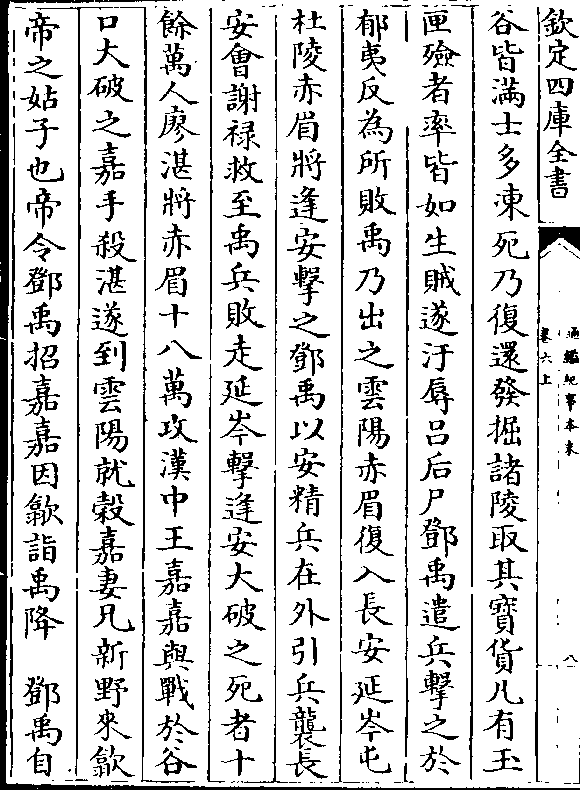 欽定四庫全書
通鑑紀事本末
卷六上
八
谷皆滿士多凍死乃復還發掘諸陵取其寳貨凡有玉
匣殮者率皆如生賊遂汙辱吕后尸鄧禹遣兵擊之於
郁夷反為所敗禹乃出之雲陽赤眉復入長安延岑屯
杜陵赤眉將逢安擊之鄧禹以安精兵在外引兵襲長
安會謝禄救至禹兵敗走延岑擊逢安大破之死者十
餘萬人廖湛將赤眉十八萬攻漢中王嘉嘉與戰於谷
口大破之嘉手殺湛遂到雲陽就穀嘉妻兄新野來歙
帝之姑子也帝令鄧禹招嘉嘉因歙詣禹降　鄧禹自